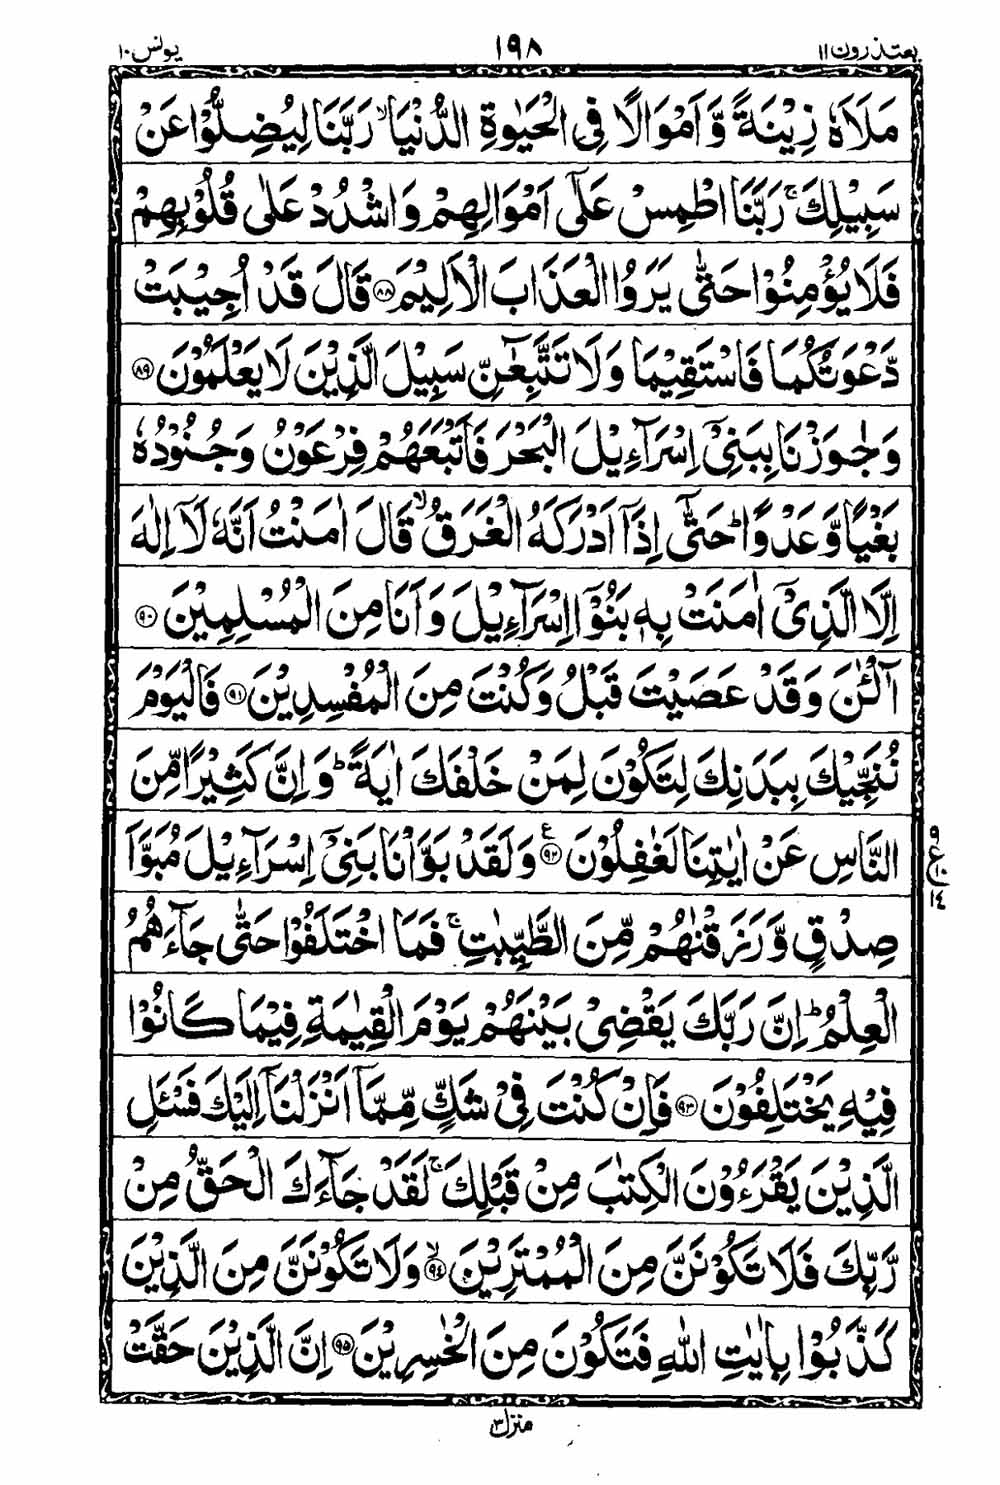 یعتذرون ١١ ١٩٨ یونس ١٠
مَلَاَهٗ زِیْنَةً وَّاَمْوَالًا فِی الْحَیٰوةِ الدُّنْیَا ۙ رَبَّنَا لِیُضِلُّوْا عَنْ
سَبِیْلِكَ ۚ رَبَّنَا اطْمِسْ عَلٰۤی اَمْوَالِهِمْ وَاشْدُدْ عَلٰی قُلُوْبِهِمْ
فَلَا یُؤْمِنُوْا حَتّٰی یَرَوُا الْعَذَابَ الْاَلِیْمَ ﴿٨٨﴾ قَالَ قَدْ اُجِیْبَتْ
دَّعْوَتُكُمَا فَاسْتَقِیْمَا وَلَا تَتَّبِعٰٓنِّ سَبِیْلَ الَّذِیْنَ لَا یَعْلَمُوْنَ ﴿٨٩﴾
وَجٰوَزْنَا بِبَنِیْۤ اِسْرَآءِیْلَ الْبَحْرَ فَاَتْبَعَهُمْ فِرْعَوْنُ وَجُنُوْدُهٗ
بَغْیًا وَّعَدْوًا ؕ حَتّٰۤی اِذَاۤ اَدْرَكَهُ الْغَرَقُ ۙ قَالَ اٰمَنْتُ اَنَّهٗ لَاۤ اِلٰهَ
اِلَّا الَّذِیْۤ اٰمَنَتْ بِهٖ بَنُوْۤا اِسْرَآءِیْلَ وَاَنَا مِنَ الْمُسْلِمِیْنَ ﴿٩٠﴾
آٰلْـٰٔنَ وَقَدْ عَصَیْتَ قَبْلُ وَكُنْتَ مِنَ الْمُفْسِدِیْنَ ﴿٩١﴾ فَالْیَوْمَ
نُنَجِّیْكَ بِبَدَنِكَ لِتَكُوْنَ لِمَنْ خَلْفَكَ اٰیَةً ؕ وَاِنَّ كَثِیْرًا مِّنَ
النَّاسِ عَنْ اٰیٰتِنَا لَغٰفِلُوْنَ ﴿٩٢﴾ ع وَلَقَدْ بَوَّاْنَا بَنِیْۤ اِسْرَآءِیْلَ مُبَوَّاَ
صِدْقٍ وَّرَزَقْنٰهُمْ مِّنَ الطَّیِّبٰتِ ۚ فَمَا اخْتَلَفُوْا حَتّٰی جَآءَهُمُ
الْعِلْمُ ؕ اِنَّ رَبَّكَ یَقْضِیْ بَیْنَهُمْ یَوْمَ الْقِیٰمَةِ فِیْمَا كَانُوْا
فِیْهِ یَخْتَلِفُوْنَ ﴿٩٣﴾ فَاِنْ كُنْتَ فِیْ شَكٍّ مِّمَّاۤ اَنْزَلْنَاۤ اِلَیْكَ فَسْـَٔلِ
الَّذِیْنَ یَقْرَءُوْنَ الْكِتٰبَ مِنْ قَبْلِكَ ۚ لَقَدْ جَآءَكَ الْحَقُّ مِنْ
رَّبِّكَ فَلَا تَكُوْنَنَّ مِنَ الْمُمْتَرِیْنَ ﴿٩٤﴾ ۙ وَلَا تَكُوْنَنَّ مِنَ الَّذِیْنَ
كَذَّبُوْا بِاٰیٰتِ اللّٰهِ فَتَكُوْنَ مِنَ الْخٰسِرِیْنَ ﴿٩٥﴾ اِنَّ الَّذِیْنَ حَقَّتْ
٩
ع ١٠
١٤
منزل ٣